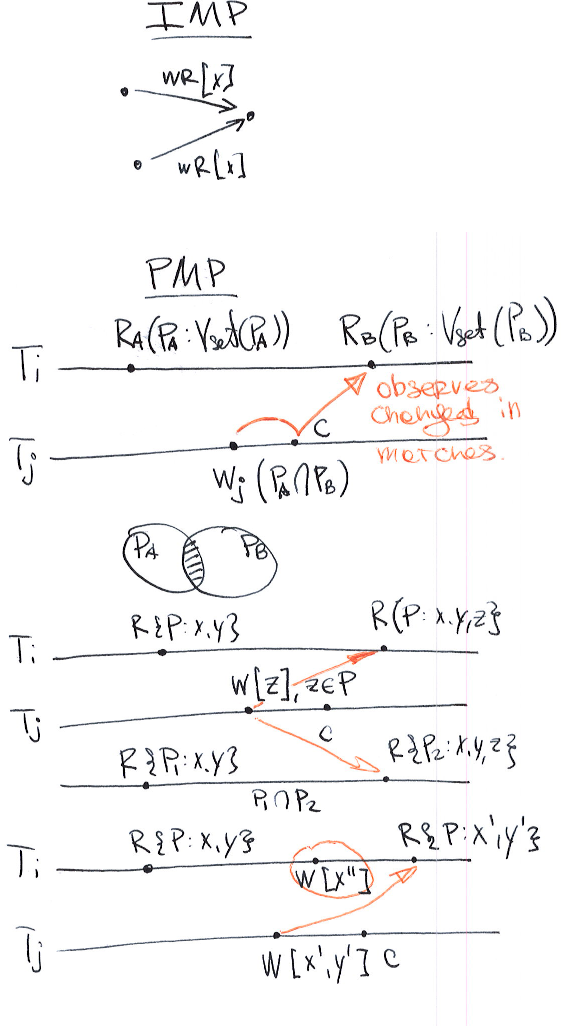 IMP
WR[x]
WR[x]
PMP
RA(PA: Vset(PA)) RB(PB: Vset(PB))
Ti
observes
changes in
matches.
C
Tj
Wj (PA∩PB)
PA PB
R{P: x.y} R(P: x.y,z}
Ti
W[z], z∈P
Tj
C
R{P1: x.y} R{P2: x,y,z}
P1∩P2
R{P: x,y} R{P: x',y'}
Ti
W[x"]
Tj
W[x',y'] C